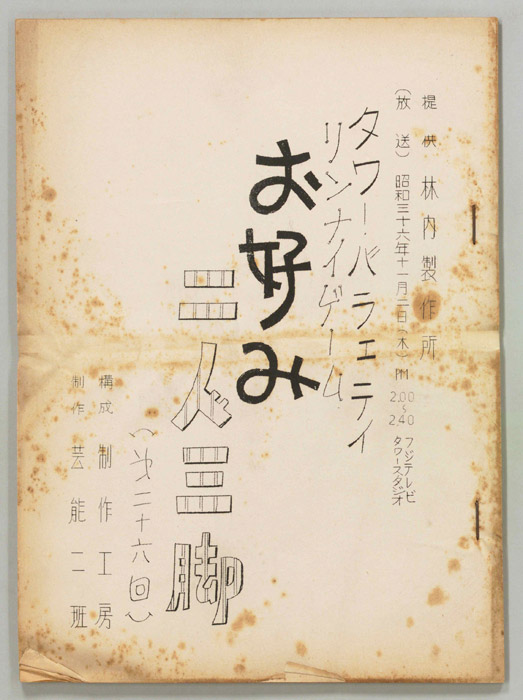 提供 林内製作所
(放送) 昭和三十六年十一月二日(木) PM 2.00〜2.40 フジテレビ タワースタジオ
タワーバラエティ
リンナイゲーム
お好み
二人三脚
(第二十六回)
構成 制作工房
制作 芸能二班